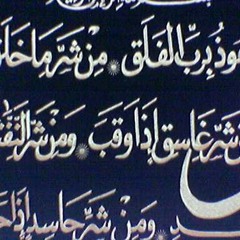 عوذ بِرَبِّ الفَلَقِ مِن شَرِّ مَا خَلَق
شَرِّ غَاسِقٍ إِذَا وَقَبَ وَمِن شَرِّ النَّفّ
د وَمِن شَرِّ حَاسِدٍ إِذَا حَ